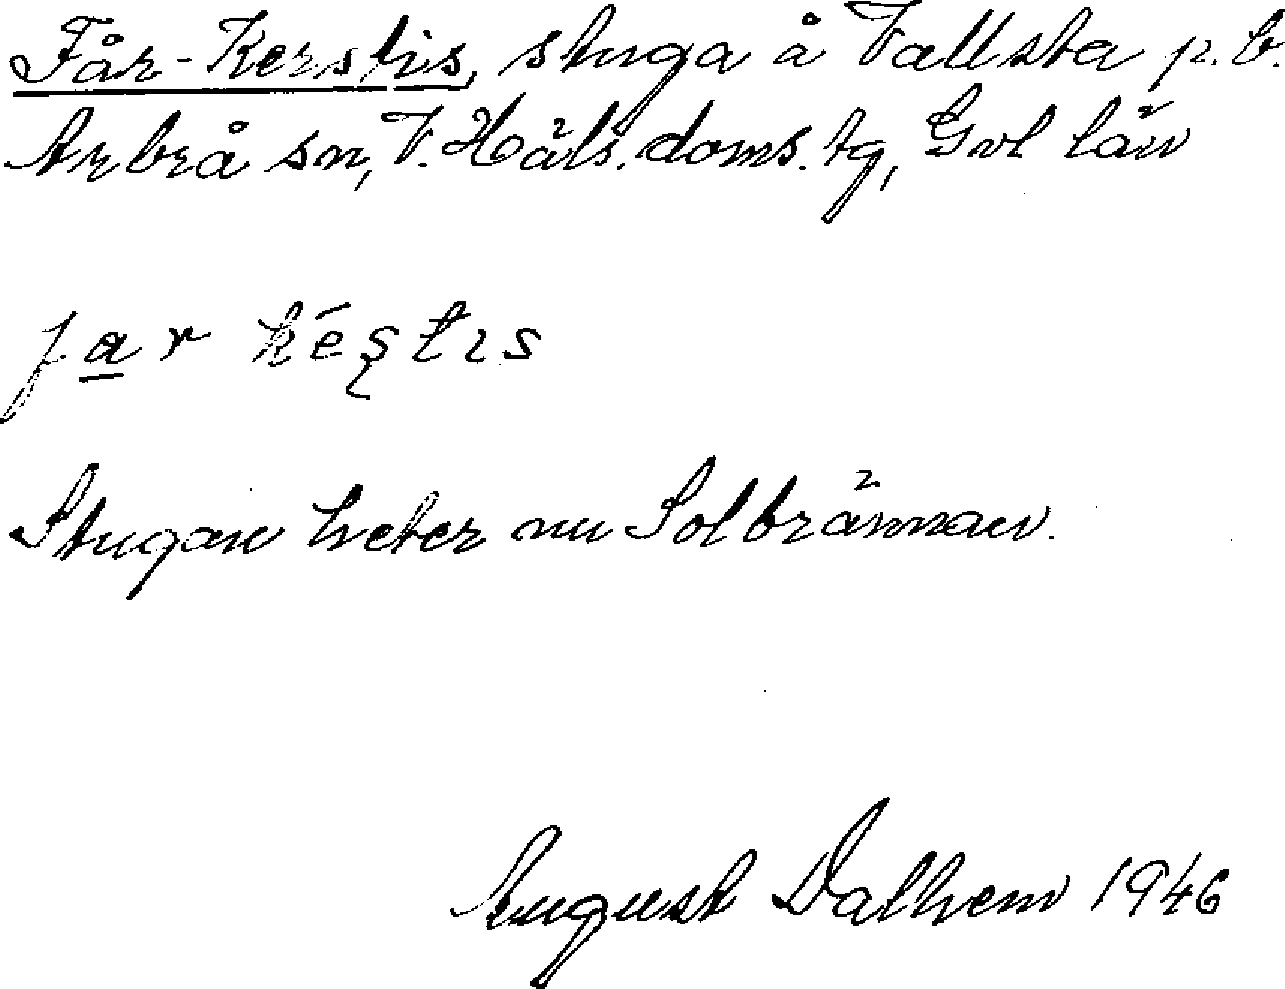 Får-Kerstis, stuga å Vallsta p.b.
Arbrå sn, V. Häls. doms. tg, Gvl län
far késtis
Stugan heter nu Solbrännan.
August Dalhem 1946